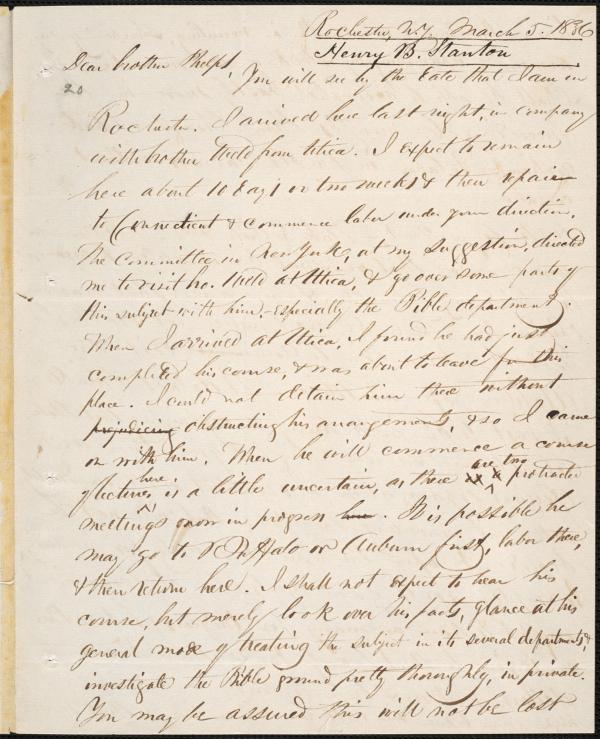 Rochester, N.Y. March 5. 1836
Henry B. Stanton
Dear brother Phelps,
20
You will see by the date that I am in
Rochester. I arrived here last night, in company
with brother Weld from Utica. I expect to remain
here about 10 days or two weeks & then repair
to Connecticut & commence labor under your direction.
The Committee in New York, at my suggestion, directed
me to visit bro. Weld at Utica, & go over some parts of
this subject with him,—especially the Bible department.
When I arrived at Utica, I found he had just
completed his course, & was about to leave for this
place. I could not detain him there without
prejudicing obstructing his arrangements, & so I came
on with him. When he will commence a course
of lectures here, is a little uncertain, as there are two protracted
meetings now in progress here. It is possible he
may go to Buffalo or Auburn first, labor there,
& then return here. I shall not expect to hear his
course, but merely look over his facts, glance at his
general mode of treating the subject in its several departments, &
investigate the Bible ground pretty thoroughly, in private.
You may be assured this will not be lost